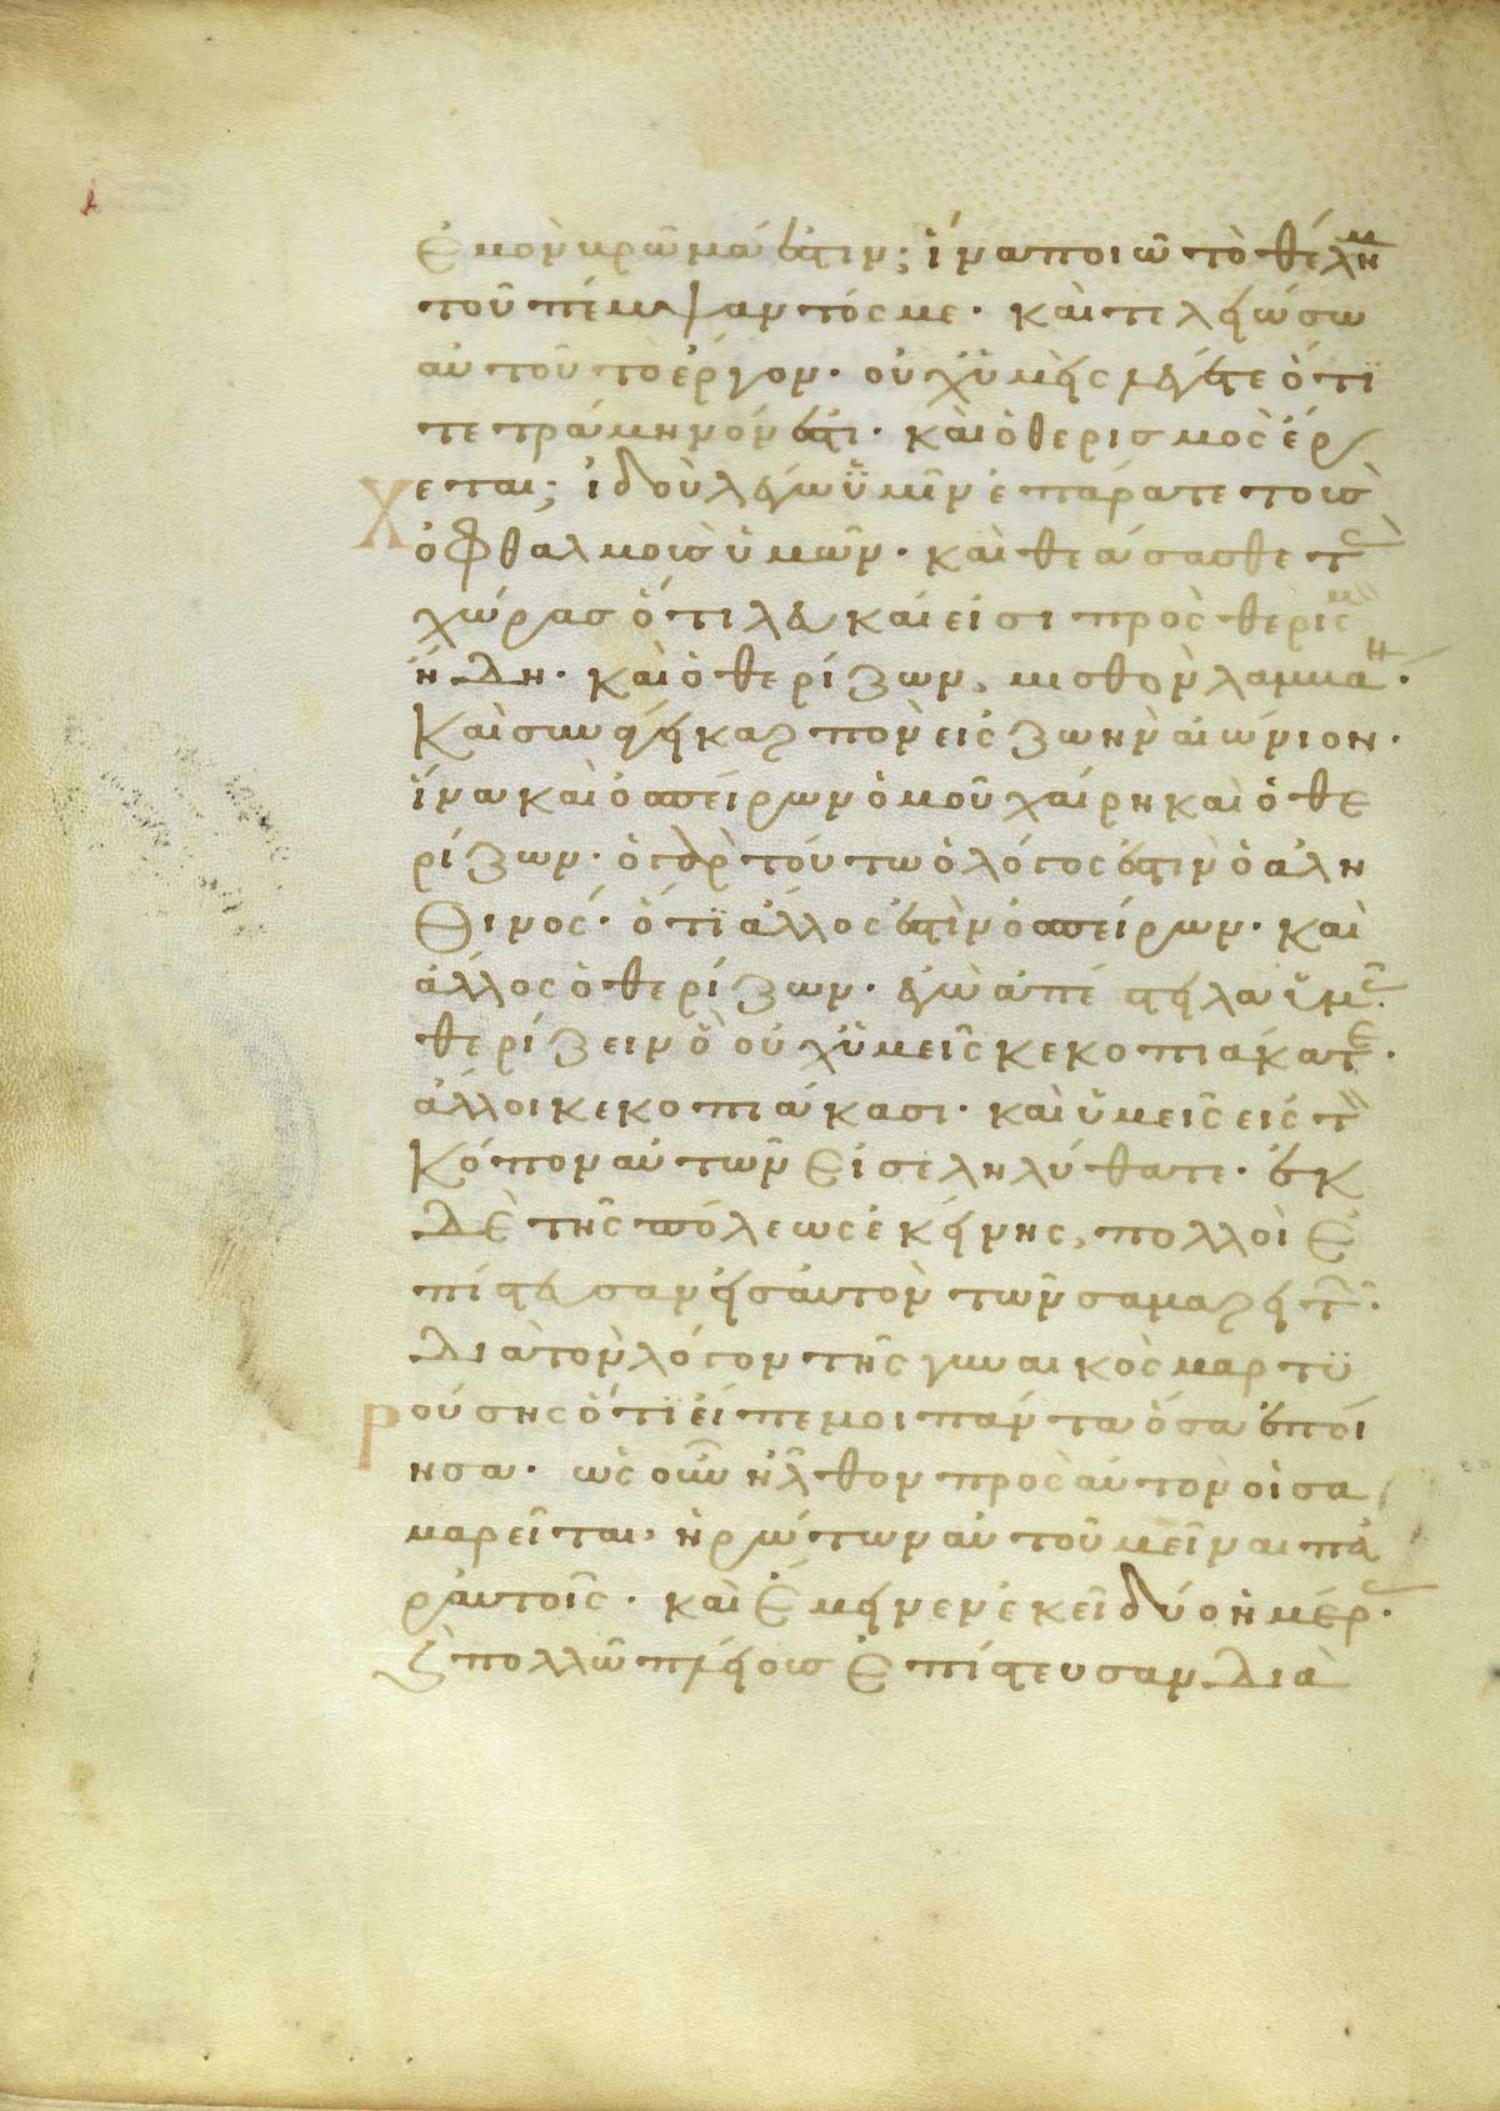 ἐμὸν βρῶμά ἐστιν; ἵνα ποιῶ τὸ θέλημ
τοῦ πέμψαντός με· καὶ τελειώσω
αὐτοῦ τὸ ἔργον· οὐχ ὑμεῖς λέγετε ὅτι
τετράμηνόν ἐστι· καὶ ὁ θερισμὸς ἔρ
χεται; ἰδοὺ λέγω ὑμῖν ἐπάρατε τοὺσ
ὀφθαλμοὺσ ὑμῶν· καὶ θεάσασθε τὰς
χώρασ ὅτι λευκαί εἰσι πρὸς θερισμὸν
ἤδη· καὶ ὁ θερίζων, μισθὸν λαμβάνει·
Καὶ συνάγει καρπὸν εἰς ζωὴν αἰώνιον·
ἵνα καὶ ὁ σπείρων ὁμοῦ χαίρη καὶ ὁ θε
ρίζων· ὁ γὰρ τούτω ὁ λόγος ἐστὶν ὁ ἀλη
θινός· ὅτι ἄλλος ἐστὶν ὁ σπείρων· καὶ
ἄλλος ὁ θερίζων· ἐγὼ ἀπέστειλα ὑμᾶς
θερίζειν ὃ οὐχ ὑμεῖς κεκοπιάκατε·
ἄλλοι κεκοπιάκασι· καὶ ὑμεῖς εἰς τὸν
Κόπον αὐτῶν εἰσεληλύθατε· ἐκ
δὲ τῆς πόλεως ἐκείνης, πολλοὶ ἐ
πίστευσαν εἰσ αὐτὸν τῶν σαμαρειτῶν·
διὰ τὸν λόγον τῆς γυναικὸς μαρτυ
ρούσης ὅτι εἶπέ μοι πάντα ὅσα ἐποί
ησα· ὡς οὖν ἦλθον πρὸς αὐτὸν οἱ σα
μαρεῖται· ἠρώτων αὐτοῦ μεῖναι πα
ρ αὐτοῖς· καὶ ἔμεινεν ἐκεῖ δύο ἡμέρας·
καὶ πολλῶ πλείουσ ἐπίστευσαν διὰ